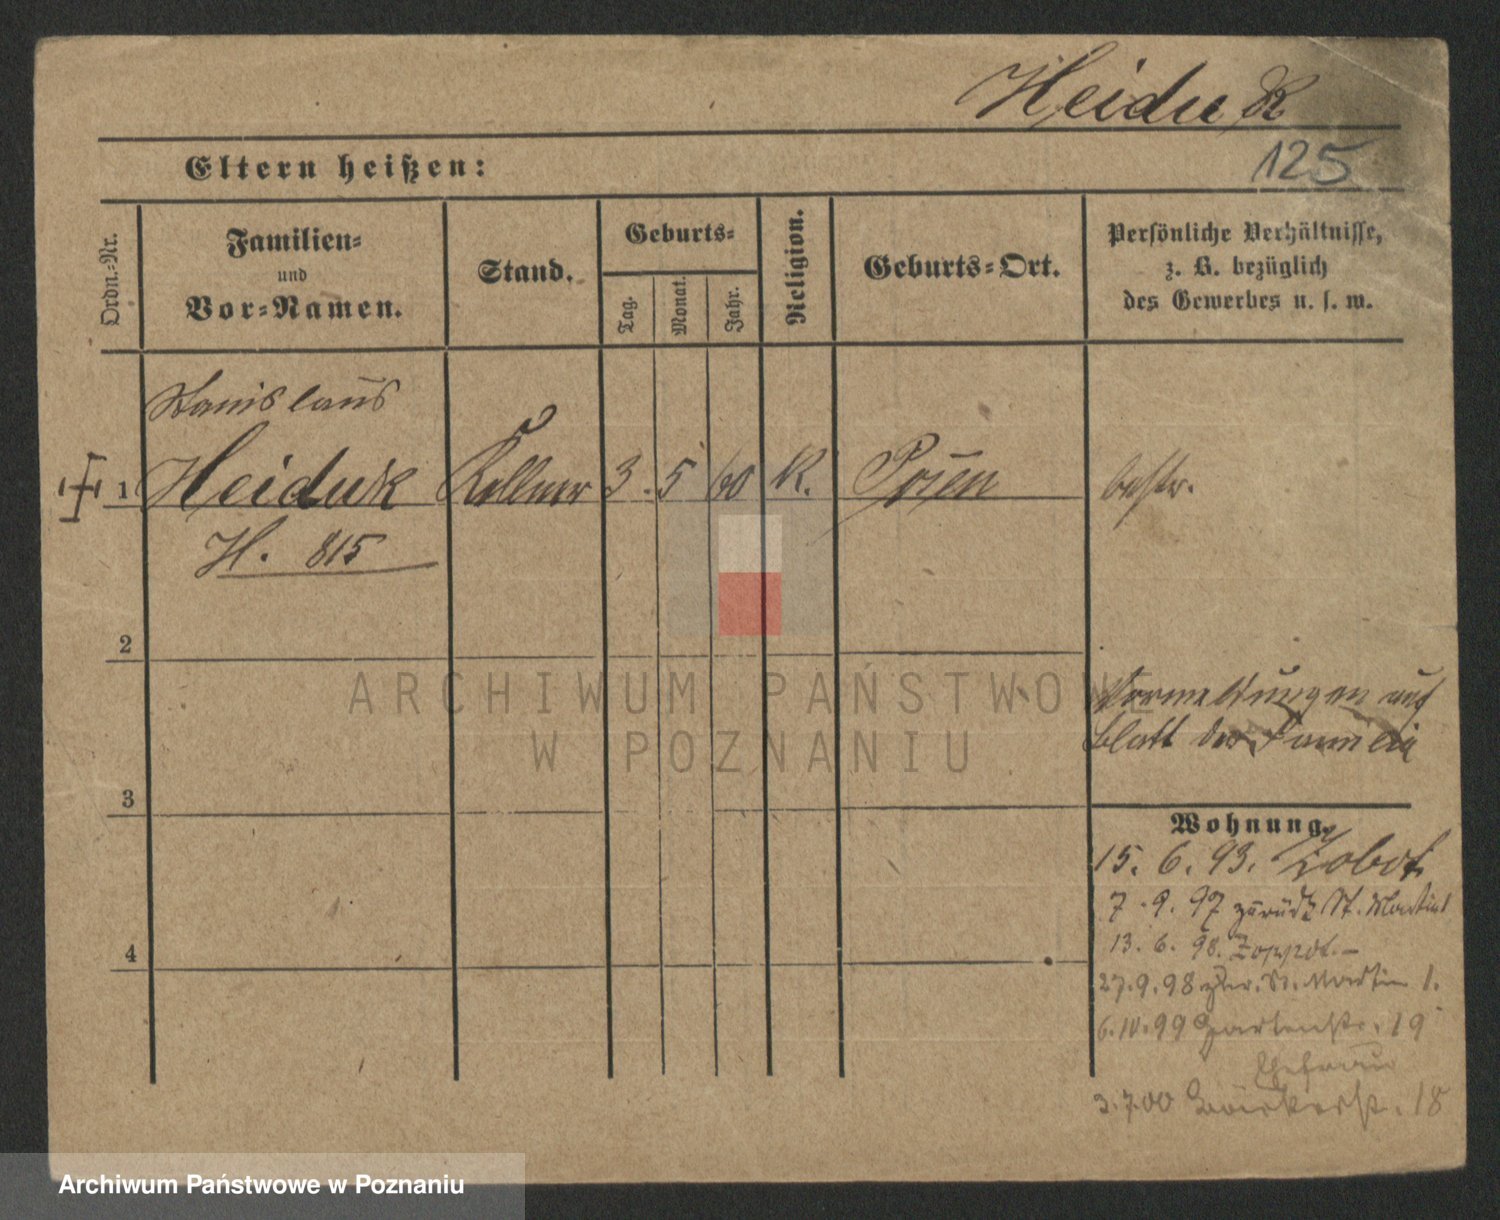 Heiduk
125
Eltern heißen:
Ordn.-Nr.
Familien-
und
Vor-Namen.
Stand.
Geburts-
Tag.
Monat.
Jahr.
Religion.
Geburts-Ort.
Persönliche Verhältnisse,
z. B. bezüglich
des Gewerbes u. s. w.
Stanislaus
1 Heiduk Kellner 3. 5 60 K. Posen bestr.
H. 815
2
ARCHIWUM PAŃSTWOWE
W POZNANIU
Vormeldungen auf
Blatt der Familie
3
Wohnung.
15. 6. 93. Zobot
7. 9. 97 zurück St. Martin 1
13. 6. 98. Zoppot.–
4
27. 9. 98 zur. St. Martin 1.
6.10.99 Gartenstr. 19
Ehefrau
3.7.00 18
Archiwum Państwowe w Poznaniu